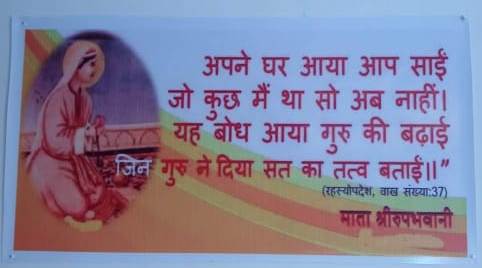 अपने घर आया आप साईं
जो कुछ मैं था सो अब नाहीं।
यह बोध आया गुरु की बढ़ाई
जिन गुरु ने दिया सत का तत्व बताईं॥”
(रहस्योपदेश, वाख संख्या:37)
माता श्रीरुपभवानी